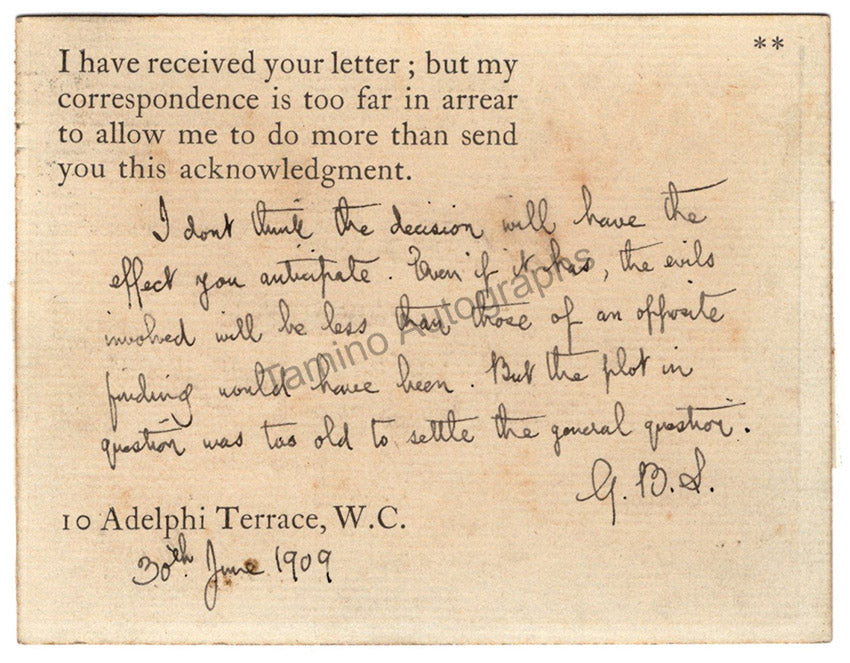 **
I have received your letter ; but my
correspondence is too far in arrear
to allow me to do more than send
you this acknowledgment.
I dont think the decision will have the
effect you anticipate. Even if it has, the evils
involved will be less than those of an opposite
finding would have been. But the plot in
question was too old to settle the general question.
G.B.S.
10 Adelphi Terrace, W.C.
30th June 1909
Tamino Autographs